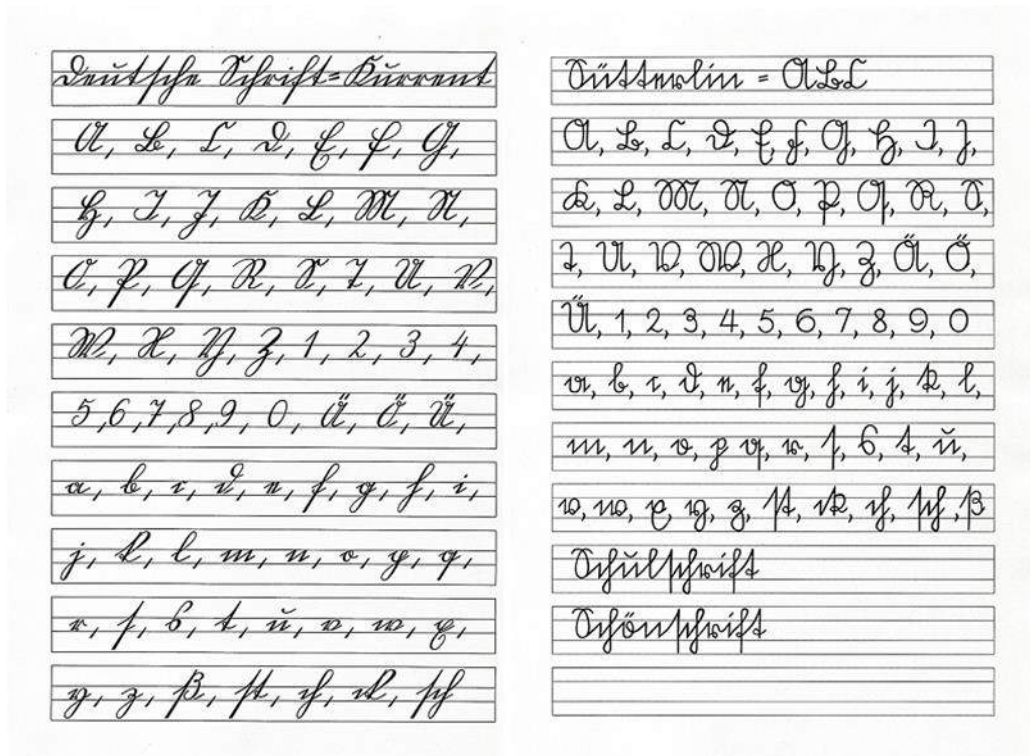 Deutsche Schrift=Kurrent
A, B, C, D, E, F, G,
H, I, J, K, L, M, N,
O, P, Q, R, S, T, U, V,
W, X, Y, Z, 1, 2, 3, 4,
5,6,7,8,9, 0, Ä, Ö, Ü,
a, b, c, d, e, f, g, h, i,
j, k, l, m, n, o, p, q,
r, ſ, s, t, u, v, w, x,
y, z, ß, ſt, ch, ck, ſch
Sütterlin = ABC
A, B, C, D, E, F, G, H, I, J,
K, L, M, N, O, P, Q, R, S,
T, U, V, W, X, Y, Z, Ä, Ö,
Ü, 1, 2, 3, 4, 5, 6, 7, 8, 9, 0
a, b, c, d, e, f, g, h, i, j, k, l,
m, n, o, p, q, r, ſ, s, t, u,
v, w, x, y, z, ſt, ck, ch, ſch, ß
Schulſchrift
Schönſchrift